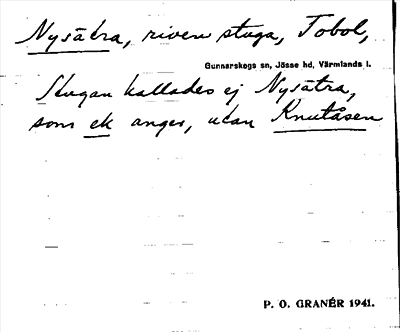 Nysätra, riven stuga, Tobol,
Gunnarskogs sn, Jösse hd, Värmlands l.
Stugan kallades ej Nysätra,
som ek anger, utan Knutåsen
P. O. GRANÉR 1941.